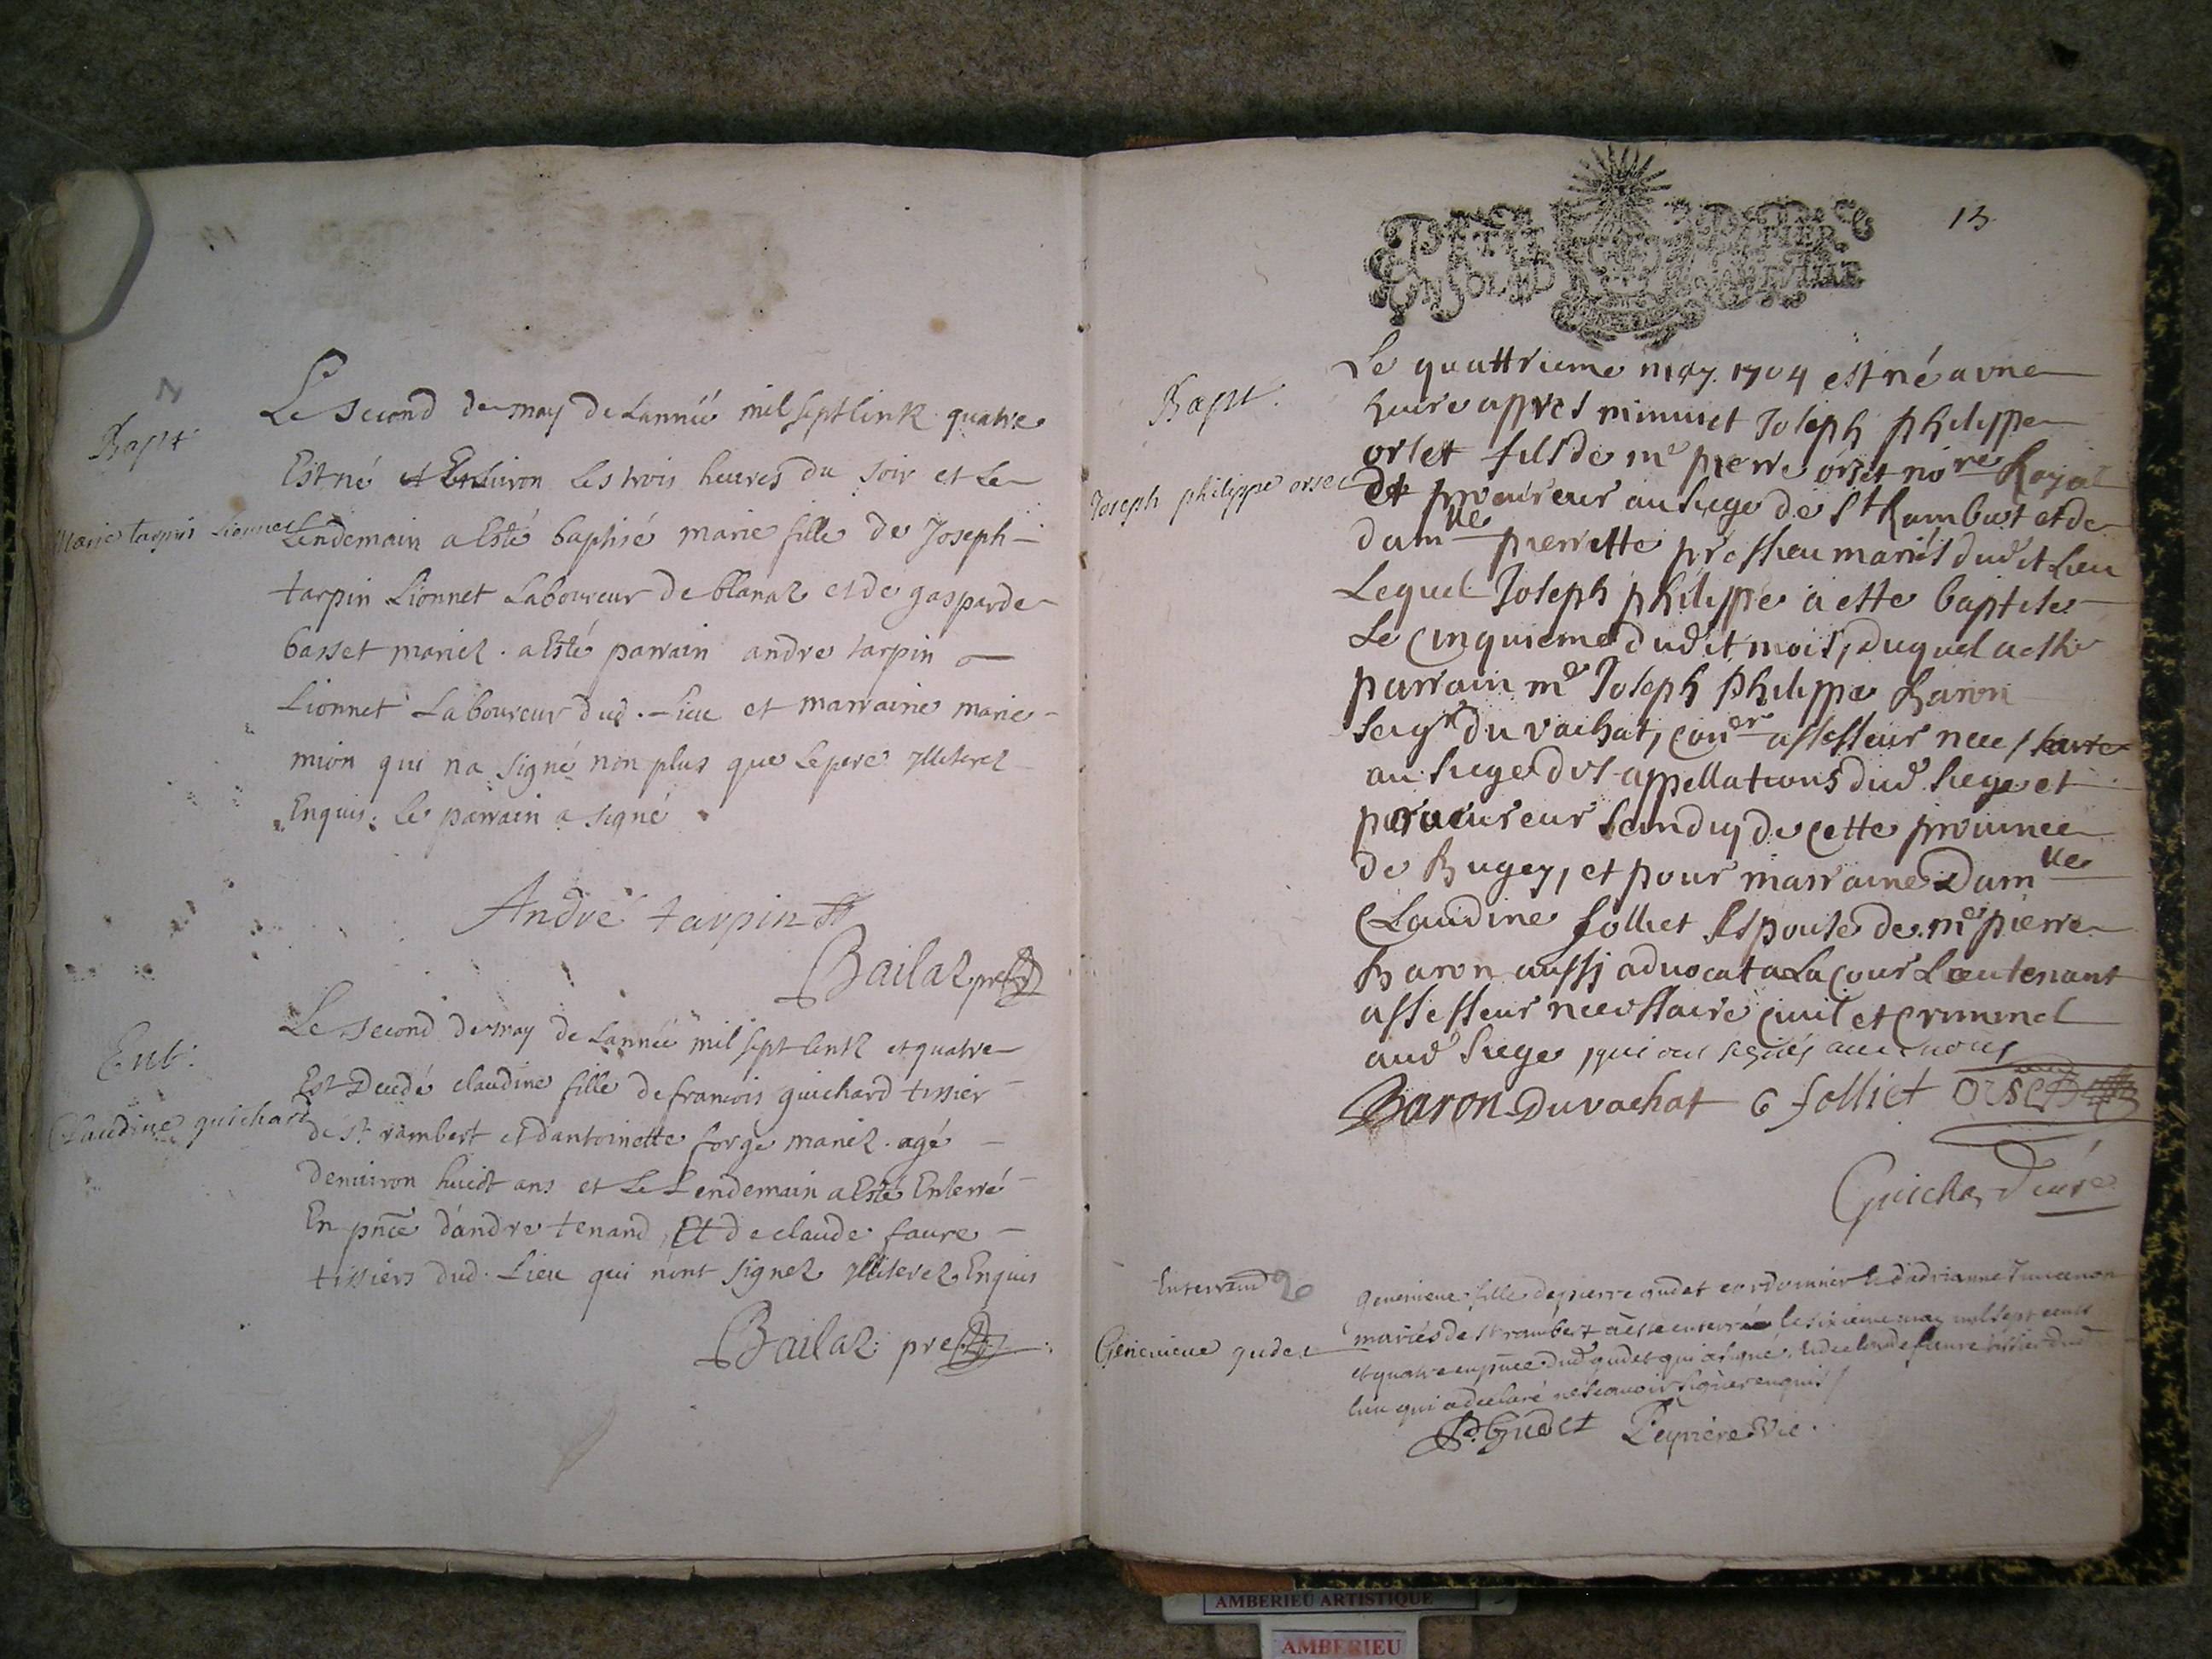 Bapt
Marie tarpin Lionnet
Le second de may de Lannéé mil sept centz quatre
Est né et Environ les trois heures du soir et Le
Lendemain a Esté baptisé marie fille de Joseph
tarpin Lionnet Laboureur de blanaz et de gasparde
basset mariez . a Esté parrain andre tarpin
Lionnet Laboureur dud . Lieu et marraine marie
mion qui na signé non plus que Le pere yliterez
Enquis . Le parrain a signé
André tarpin
Bailaz pre
Ent .
Claudine guichard
Le second de may de Lannéé mil sept centz et quatre
Est Decedé claudine fille de francois guichard tissier
de St rambert et dantoinette forge mariez . agé
denuiron huict ans et Le Lendemain a Esté Enterré
En pnce dandre tenand Et de claude faure
tissiers dud . Lieu qui n'ont signez yliterez Enquis
Bailaz pre
PETIT PAPIER
13
Bapt .
Joseph philippe orset
Le quattrieme may 1704 est né a vne
heure appres minuict Joseph philippe
orset fils de me pierre orset nore Royal
Et procureur au siege de St Rambert et de
damlle pierrette pressieu mariés dudit Lieu
Lequel Joseph philippe a este baptise
Le Cinquieme dudit mois, duquel a este
parrain me Joseph philippe Baron
seigr du vachat, coner assesseur
au siege des appellations dud siege et
procureur scindiq de cette prouince
de Bugey, et pour marraine Damlle
Claudine folliet Espouse de me pierre
Baron aussi aduocat a La Cour Lieutenant
assesseur necessaire Ciuil et Criminel
aud siege, qui ont signés auec nous
Baron Duvachat C folliet orset
Guichard curé
Enterremt
Geneuieue gudet
Geneuieue fille de pierre gudet cordonnier et dadrianne
mariés de St rambert a este enterrée le sixieme may mil sept cents
et quatre en pnce dud gudet qui a signé, et de claude faure tissier dud
lieu qui a declaré ne scauoir signer enquis
P. Gudet Peyriere Vic .
AMBERIEU ARTISTIQUE
AMBERIEU